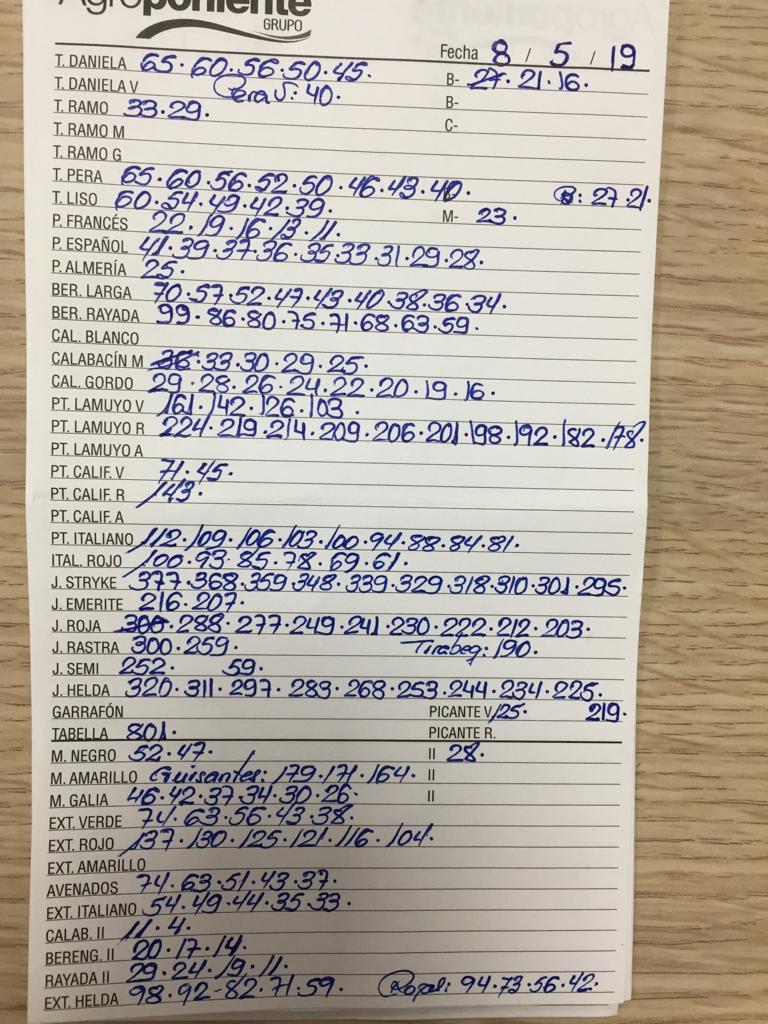 Agroponiente
GRUPO
Fecha 8 / 5 / 19
T. DANIELA 65. 60. 56. 50. 45. B- 27. 21. 16.
T. DANIELA V Pera V: 40. B-
T. RAMO 33. 29. C-
T. RAMO M
T. RAMO G
T. PERA 65. 60. 56. 52. 50. 46. 43. 40. B: 27. 21.
T. LISO 60. 54. 49. 42. 39. M- 23.
P. FRANCÉS 22. 19. 16. 13. 11.
P. ESPAÑOL 41. 39. 37. 36. 35. 33. 31. 29. 28.
P. ALMERÍA 25.
BER. LARGA 70. 57. 52. 47. 43. 40. 38. 36. 34.
BER. RAYADA 99. 86. 80. 75. 71. 68. 63. 59.
CAL. BLANCO
CALABACÍN M 36. 33. 30. 29. 25.
CAL. GORDO 29. 28. 26. 24. 22. 20. 19. 16.
PT. LAMUYO V 161. 142. 126. 103.
PT. LAMUYO R 224. 219. 214. 209. 206. 201. 198. 192. 182. 178.
PT. LAMUYO A
PT. CALIF. V 71. 45.
PT. CALIF. R 143.
PT. CALIF. A
PT. ITALIANO 112. 109. 106. 103. 100. 94. 88. 84. 81.
ITAL. ROJO 100. 93. 85. 78. 69. 61.
J. STRYKE 377. 368. 359. 348. 339. 329. 318. 310. 301. 295.
J. EMERITE 216. 207.
J. ROJA 300. 288. 277. 249. 241. 230. 222. 212. 203.
J. RASTRA 300. 259. Tirabeq: 190.
J. SEMI 252. 59.
J. HELDA 320. 311. 297. 283. 268. 253. 244. 234. 225.
GARRAFÓN PICANTE V 125. 219.
TABELLA 801. PICANTE R.
M. NEGRO 52. 47. II 28.
M. AMARILLO Guisantes: 179. 171. 164. II
M. GALIA 46. 42. 37. 34. 30. 26. II
EXT. VERDE 74. 63. 56. 43. 38.
EXT. ROJO 137. 130. 125. 121. 116. 104.
EXT. AMARILLO
AVENADOS 74. 63. 51. 43. 37.
EXT. ITALIANO 54. 49. 44. 35. 33.
CALAB. II 11. 4.
BERENG. II 20. 17. 14.
RAYADA II 29. 24. 19. 11.
EXT. HELDA 98. 92. 82. 71. 59. 94. 73. 56. 42.